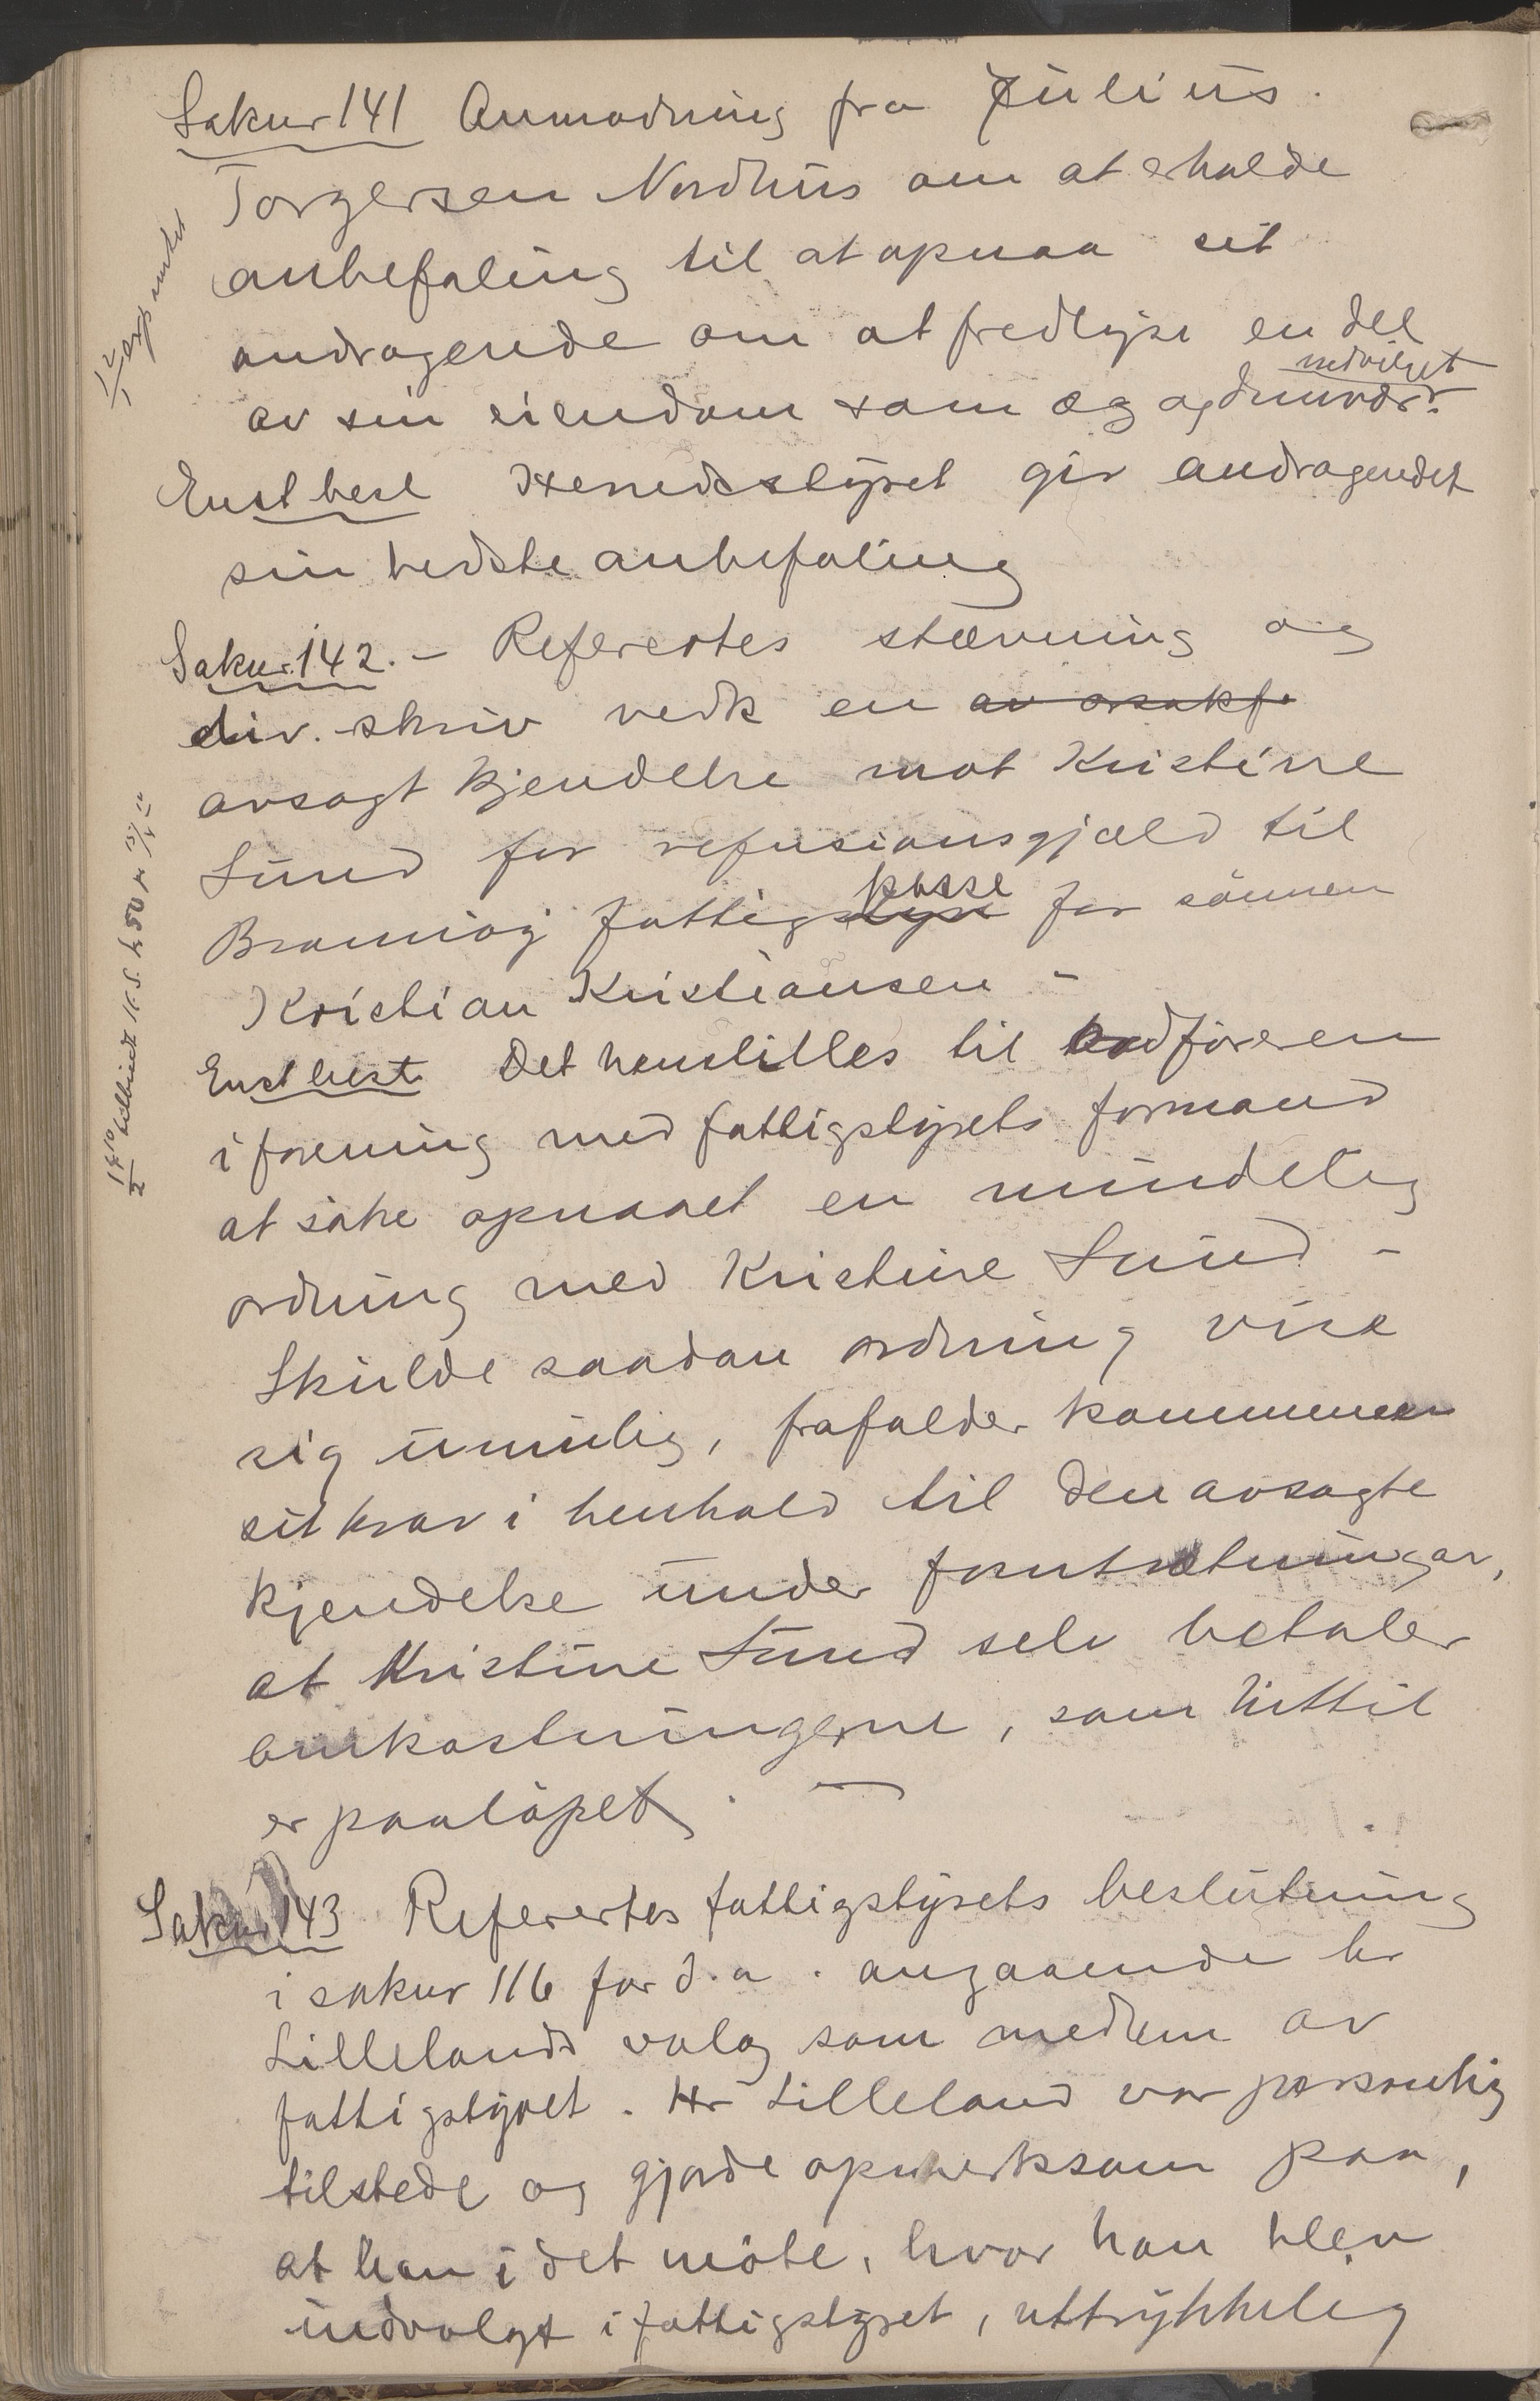 Saknr 141 Anmodning fra Julius
Torgersen Nordhus om at erholde
anbefaling til at opnaa sit
andragende om at fredlyse en del
av sin eiendom som eg og dunvær.
nedvilget
Enst besl Herredsstyret gir andragendet
sin bedste anbefaling
Saknr. 142. – Referertes stævning og
div. skriv vedk en av
avsagt kjendelse mot Kristine
Lund for refusionsgjæld til
Brønnöy fattigstyre kasse for sönnen
Kristian Kristiansen –
Enst besl. Det henstilles til ordföreren
i forening med fattigstyrets formand
at söke opnaaet en mindelig
ordning med Kristine Lund –
Skulde saadan ordning vise
sig umulig, frafalder kommunen
sit krav i henhold til den avsagte
kjendelse under forutsætning av,
at Kristine Lund selv betaler
omkostningerne, som hittil
er paalöpet. –
Saknr 143 Referertes fattigstyrets beslutning
i saknr 116 for d.a. angaaende hr
Lillelands valg som medlem av
fattigstyret. Hr Lilleland var personlig
tilstede og gjorde opmerksom paa,
at han i det möte, hvor han blev
indvalgt i fattigstyret, uttrykkelig